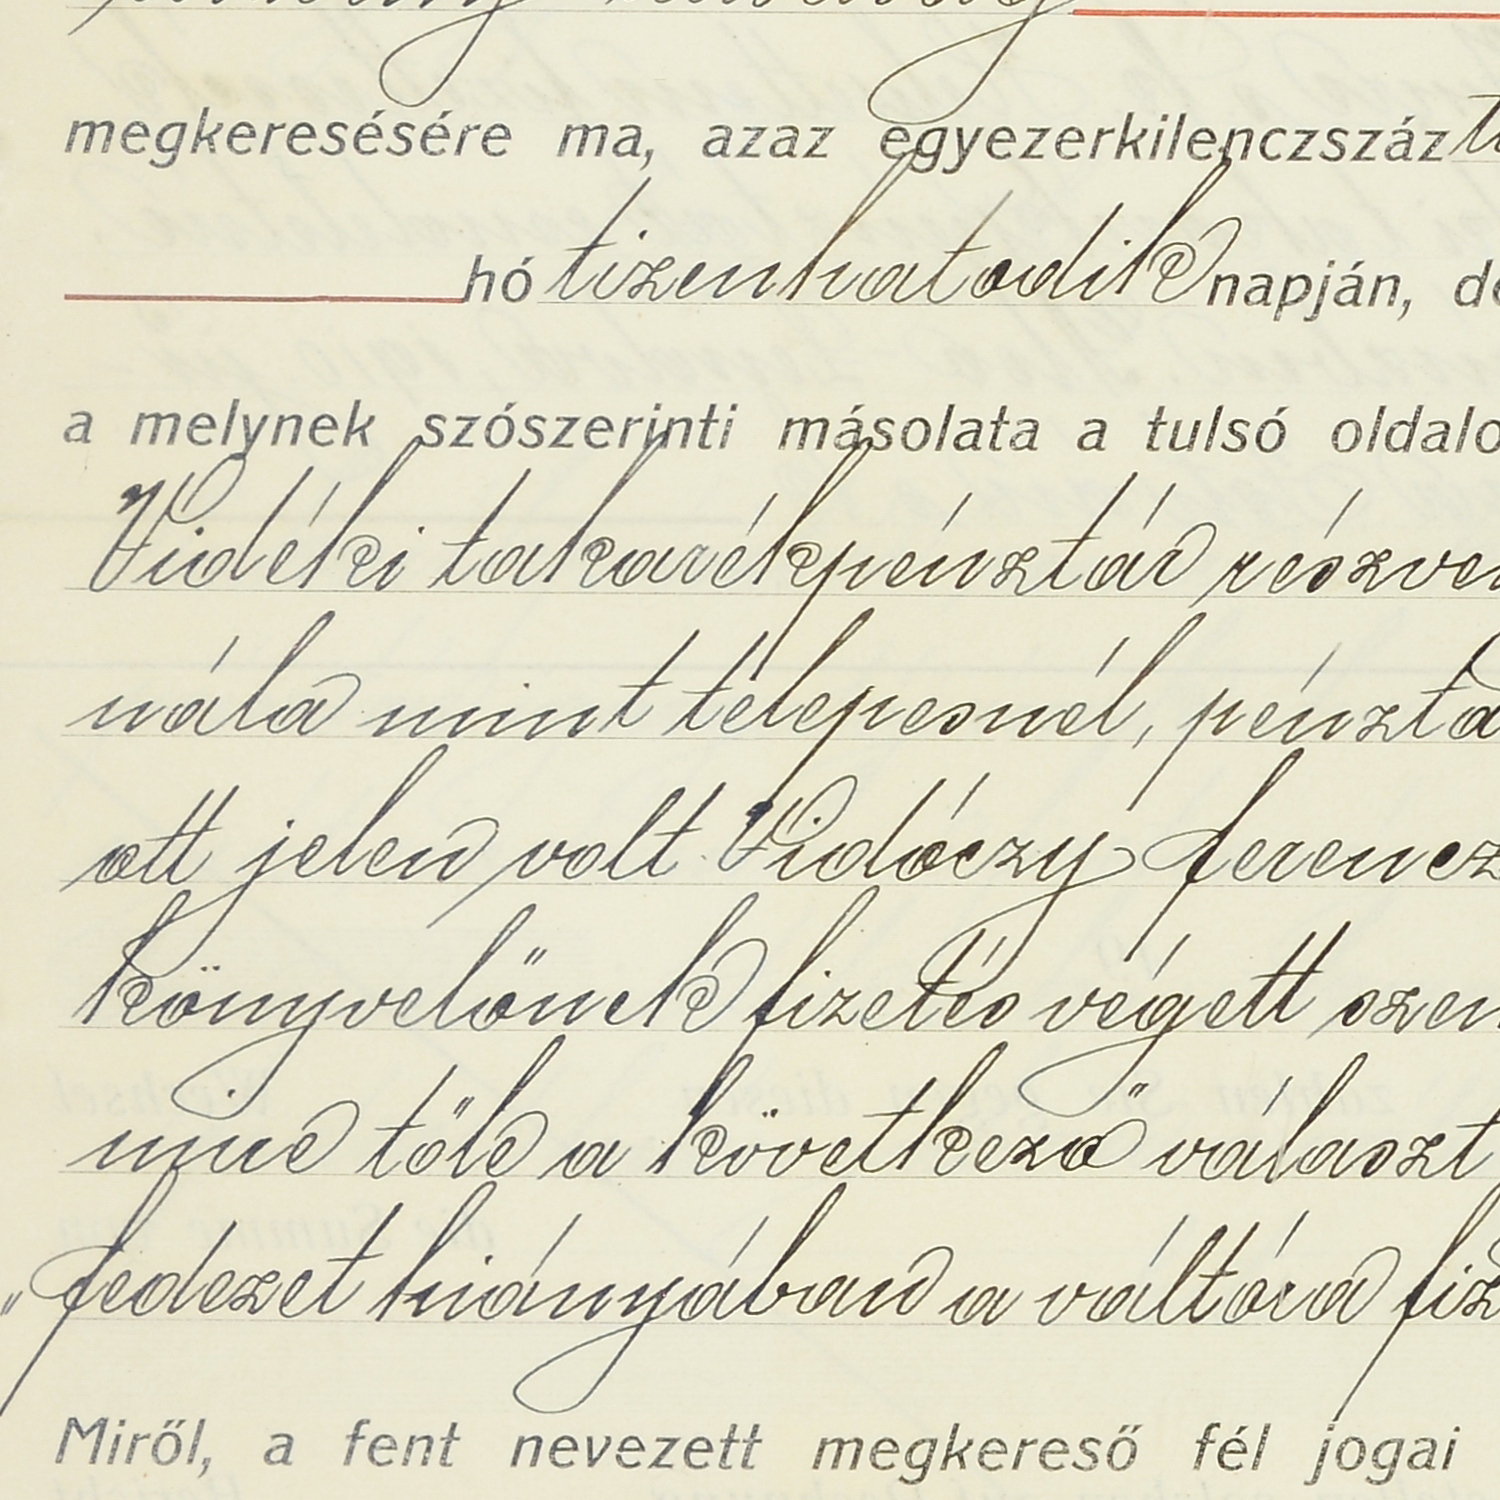 megkeresésére ma, azaz egyezerkilenczszáz
hó tizenhatodik napján, de
a melynek szószerinti másolata a tulsó oldalo
Vidéki takarékpénztár részvén
nála mint telepesnél, pénztá
ott jelen volt Vidóczy Ferencz
könyvelőnek fizetés végett szem
mire tőle a következő választ
„fedezet hiányában a váltóra fiz
Miről, a fent nevezett megkereső fél jogai